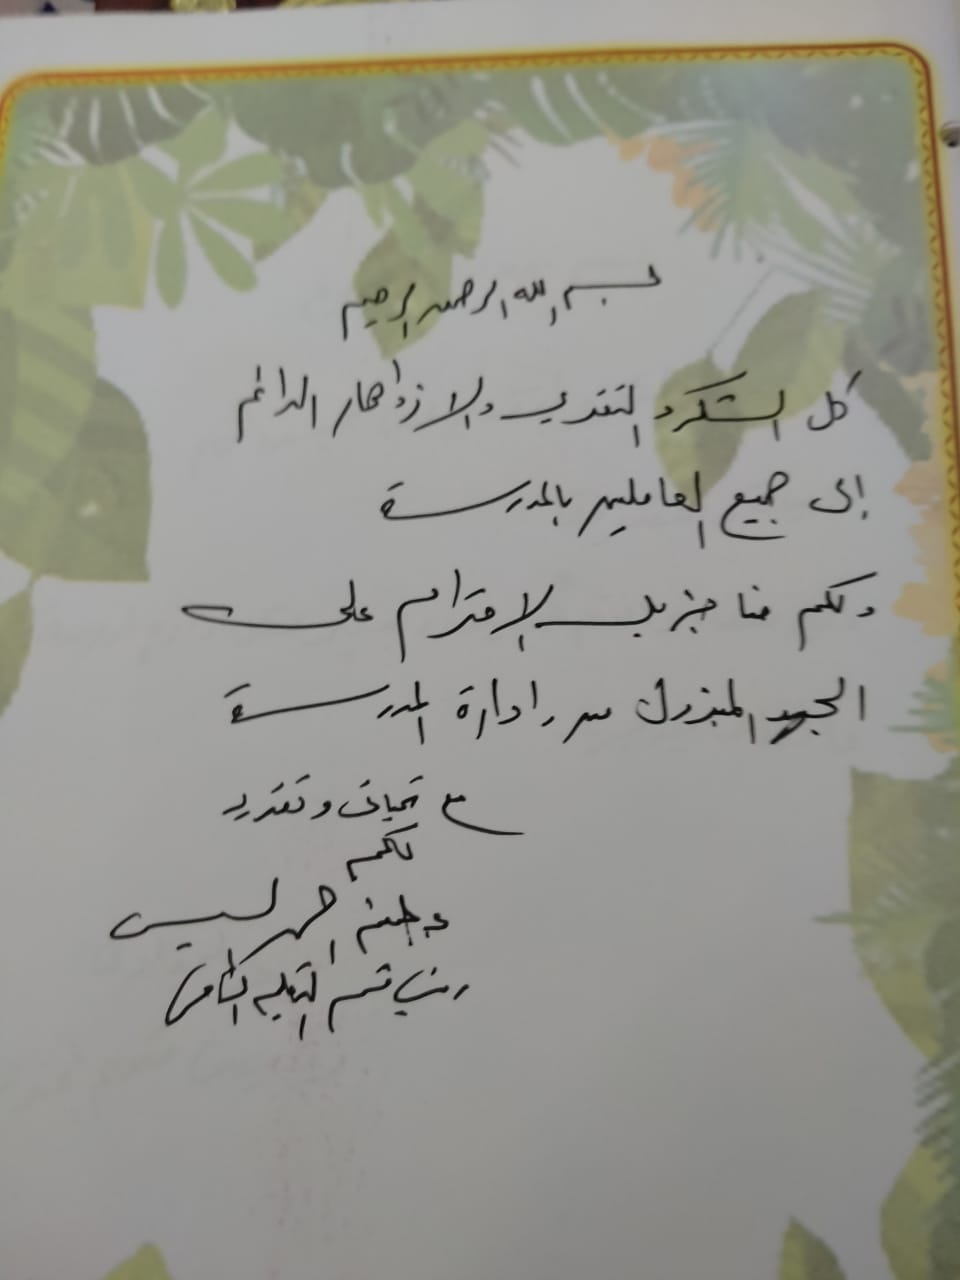 بسم الله الرحمن الرحيم
كل الشكر والتقدير والازدهار الدائم
إلى جميع العاملين بالمدرسة
ولكم منا جزيل الاحترام على
الجهد المبذول من إدارة المدرسة
مع تحياتى وتقديرى
لكم
رئيس قسم التعليم الخاص